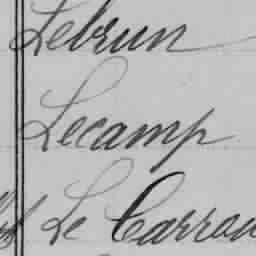 Lebrun
Lecamp
Le Carrou